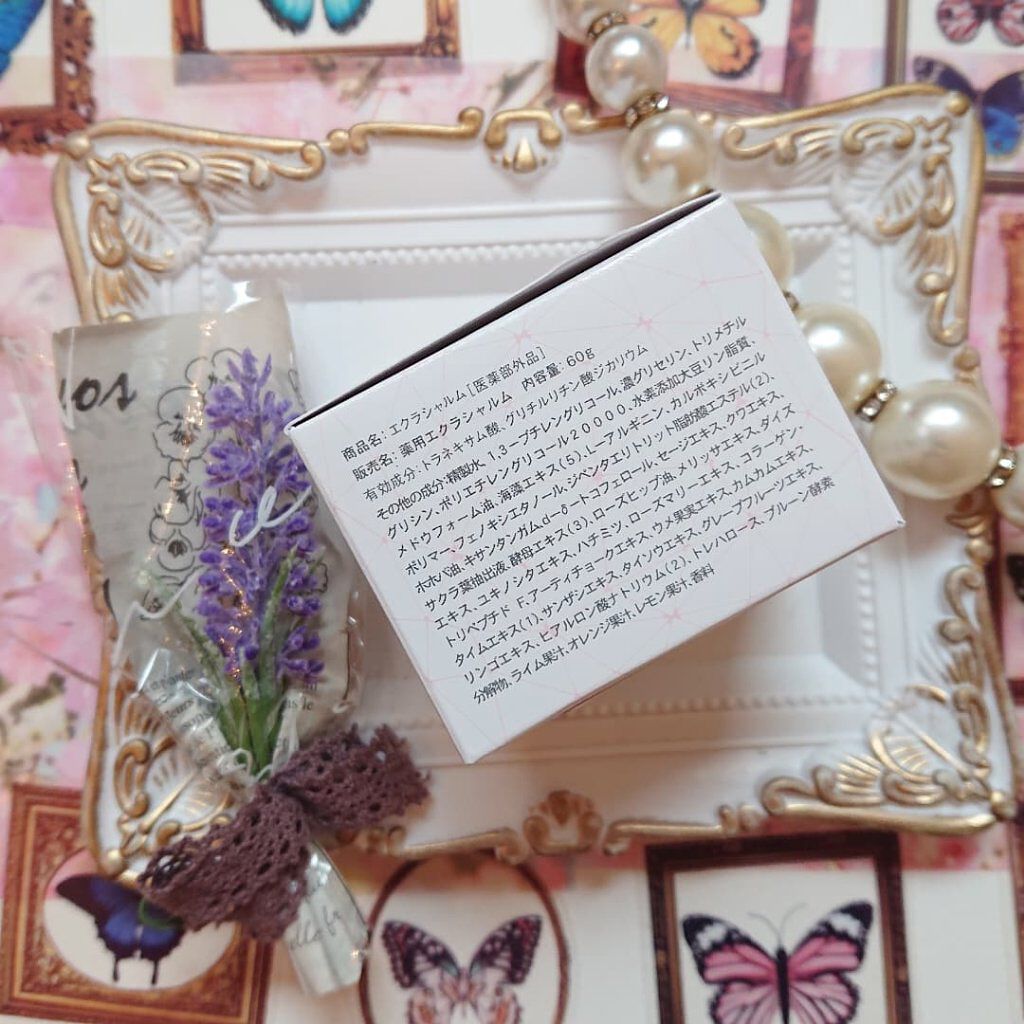 商品名:エクラシャルム[医薬部外品]
販売名:薬用エクラシャルム 内容量:60g
有効成分:トラネキサム酸、グリチルリチン酸ジカリウム
その他の成分:精製水、1,3-ブチレングリコール、濃グリセリン、トリメチル
グリシン、ポリエチレングリコール20000、水素添加大豆リン脂質、
メドウフォーム油、海藻エキス(5)、L-アルギニン、カルボキシビニル
ポリマー、フェノキシエタノール、ジペンタエリトリット脂肪酸エステル(2)、
ホホバ油、キサンタンガム、d-δ-トコフェロール、セージエキス、クワエキス、
サクラ葉抽出液、酵母エキス(3)、ローズヒップ油、メリッサエキス、ダイズ
エキス、ユキノシタエキス、ハチミツ、ローズマリーエキス、コラーゲン・
トリペプチド F、アーティチョークエキス、ウメ果実エキス、カムカムエキス、
タイムエキス(1)、サンザシエキス、タイソウエキス、グレープフルーツエキス、
リンゴエキス、ヒアルロン酸ナトリウム(2)、トレハロース、プルーン酵素
分解物、ライム果汁、オレンジ果汁、レモン果汁、香料